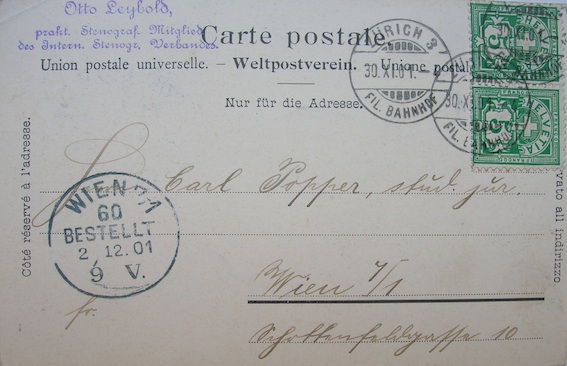 Otto Leybold,
prakt. Stenograf. Mitglied
des Intern. Stenogr. Verbandes.
Carte postale
Union postale universelle. – Weltpostverein. – Unione postale
Nur für die Adresse.
ZÜRICH 3
30.XI.01.
FIL. BAHNHOF
30.XI.
HELVETIA
FRANCO
5
HELVETIA
Côté réservé à l'adresse.
vato all indirizzo.
Carl Popper, stud. jur.
WIEN 7/1
60
BESTELLT
2 12.01
9 V.
Wien 7/1
fr.
Schottenfeldgasse 10